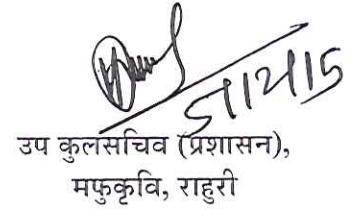 उप कुलसचिव (प्रशासन),
मफुकृवि, राहुरी